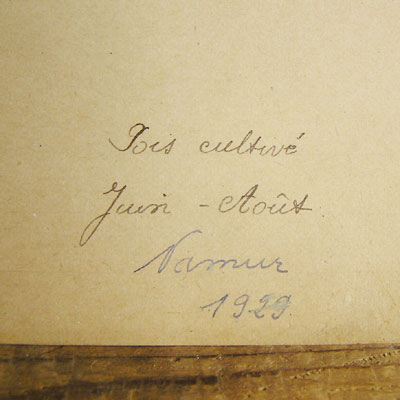 Pois cultivé
Juin - Août.
Namur
1929